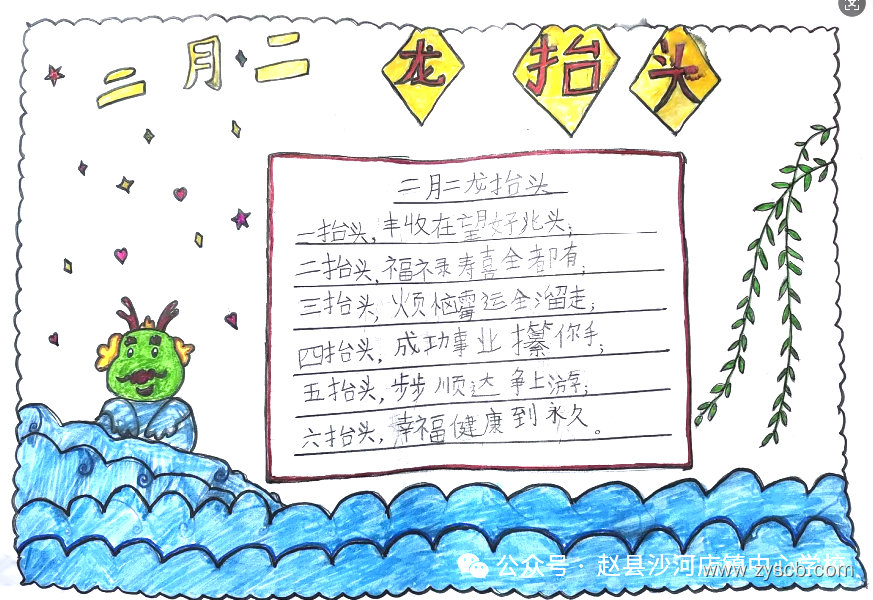 二月二 龙抬头
二月二龙抬头
一抬头，丰收在望好兆头；
二抬头，福禄寿喜全都有；
三抬头，烦恼霉运全溜走；
四抬头，成功事业攥你手；
五抬头，步步顺达争上游；
六抬头，幸福健康到永久。
公众号·赵县沙河店镇中心学校
www.zyscb.com